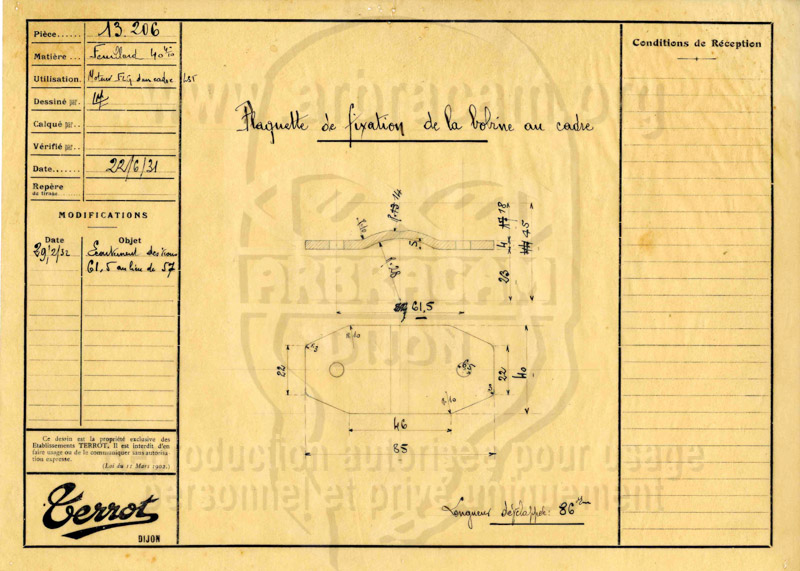 Pièce...... 13.206
Matière ... Feuillard 40
Utilisation.
Dessiné par.
Calqué par..
Vérifié par..
Date....... 22/6/31
Repère
de tirage
MODIFICATIONS
Date Objet
29/2/32 Ecartement des trous
61,5 au lieu de 57
Ce dessin est la propriété exclusive des
Etablissements TERROT, Il est interdit d'en
faire usage ou de le communiquer sans autorisa-
tion expresse.
(Loi du 11 Mars 1902.)
Terrot
DIJON
Plaquette de fixation de la bobine au cadre
14
18
45
4
5
23
61,5
22
22
40
46
85
Longueur développée: 86
Conditions de Réception
www.arbracam.org
ARBRACAM
DIJON
production autorisée pour usage
personnel et privé uniquement